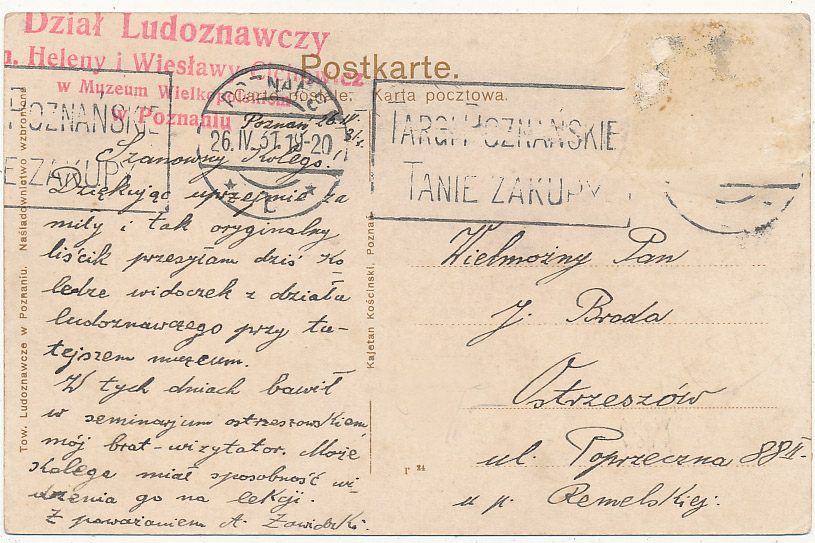 Dział Ludoznawczy
Heleny i Wiesławy Cichowicz
w Muzeum Wielkopolskiem
w Poznaniu
Postkarte.
Carte postale. Karta pocztowa.
POZNAŃSKIE
E ZAKUPY
POZNAŃ
26.IV.31.19-20
TARGI POZNAŃSKIE
TANIE ZAKUPY
Poznań 26 IV
31 r.
Szanowny Kolego!
Dziękując uprzejmie za
miły i tak oryginalny
liścik przesyłam dziś Ko
ledze widoczek z działu
ludoznawczego przy tu-
tejszem muzeum.
W tych dniach bawił
w seminarjum ostrzeszowskiem
mój brat-wizytator. Może
Kolega miał sposobność wi-
dzenia go na lekcji.
Z poważaniem A. Zawidzki.
Tow. Ludoznawcze w Poznaniu. Naśladownictwo wzbronione
Kajetan Kościnski, Poznań
Wielmożny Pan
J. Broda
Ostrzeszów
ul. Poprzeczna 88 II.
u p. Remelskiej.